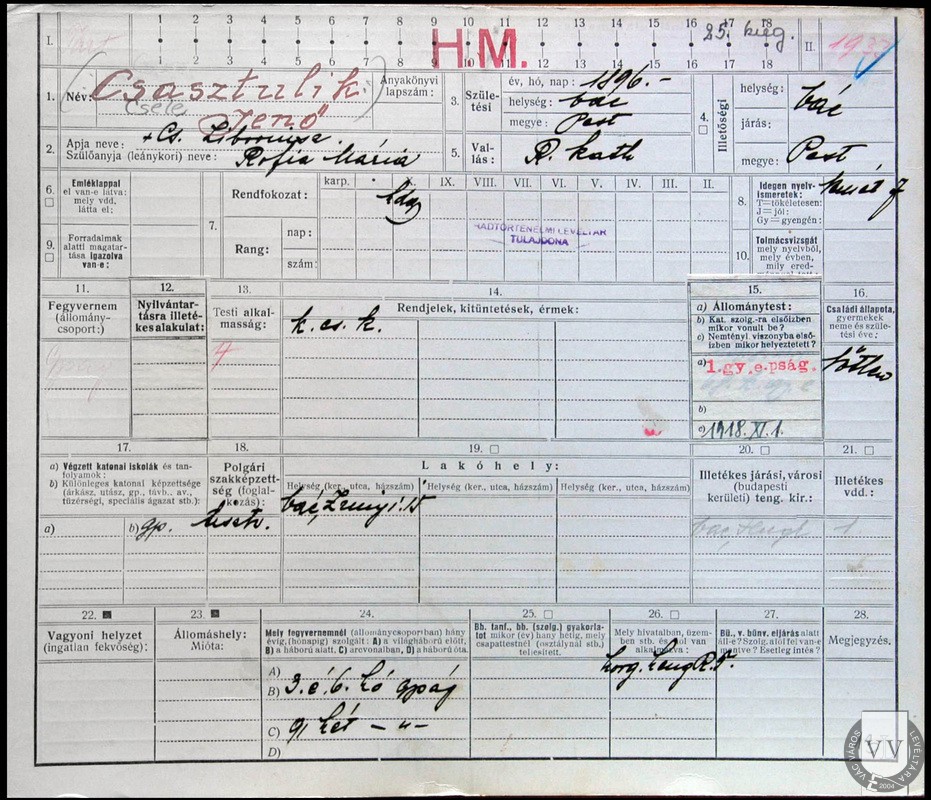 1 2 3 4 5 6 7 8 9 10 11 12 13 14 15 16 17 18
I.
H.M.
25. kieg.
II.
1 2 3 4 5 6 7 8 9 10 11 12 13 14 15 16 17 18
1. Név: Csasztulik
Jenő
Anyakönyvi lapszám:
2. Apja neve: + Cs.
Szülőanyja (leánykori) neve: Rofia Mária
3. Születési
év, hó, nap: 1896.-
helység: Vác
megye: Pest
4. Illetőségi
helység: Vác
járás:
megye: Pest
5. Vallás: R. kath
6. Emléklappal el van-e látva: mely vdd. látta el:
7. Rendfokozat:
karp. X. IX. VIII. VII. VI. V. IV. III. II.
Rang:
nap:
szám:
HADTÖRTÉNELMI LEVÉLTÁR
TULAJDONA
8. Idegen nyelvismeretek:
T=tökéletesen:
J=jól:
Gy=gyengén:
9. Forradalmak alatti magatartása igazolva van-e:
10. Tolmácsvizsgát mely nyelvből, mely évben, mily ered-
11. Fegyvernem (állománycsoport:)
12. Nyilvántartásra illetékes alakulat:
13. Testi alkalmasság:
14. Rendjelek, kitüntetések, érmek:
k. cs. k.
15. a) Állománytest:
b) Kat. szolg.-ra elsőízben mikor vonult be?
c) Nemtényl viszonyba elsőízben mikor helyeztetett?
a) 1. gy. e. pság.
b)
c) 1918. XI. 1.
16. Családi állapota, gyermekek neme és születési éve:
nőtlen
17. a) Végzett katonai iskolák és tanfolyamok:
b) Különleges katonai képzettsége (árkász, utász, gp., távb., av., tüzérségi, speciális ágazat stb.):
a) b) gp.
18. Polgári szakképzettség (foglalkozás):
tisztv.
19. Lakóhely:
Helység (ker., utca, házszám) Helység (ker., utca, házszám) Helység (ker., utca, házszám)
Vác, Zrinyi 15
20. Illetékes járási, városi (budapesti kerületi) teng. kir.:
21. Illetékes vdd.:
1
22. Vagyoni helyzet (ingatlan fekvőség):
23. Állomáshely: Mióta:
24. Mely fegyvernemnél (állománycsoportban) hány évig, (hónapig) szolgált: A) a világháború előtt, B) a háború alatt, C) arcvonalban, D) a háború óta.
A)
B) 3. é. 6. hó gpág
C) 91 hét - " -
D)
25. Bb. tanf., bb. (szolg.) gyakorlatot mikor (év) hány hétig, mely csapattestnél (osztálynál stb.) teljesített.
26. Mely hivatalban, üzemben stb. és mióta van alkalmazva:
27. Bü., v. bünv. eljárás alatt áll-e? Szolg. alól fel van-e mentve? Esetleg intés?
28. Megjegyzés.
VÁC VÁROS LEVÉLTÁRA
VV
2004